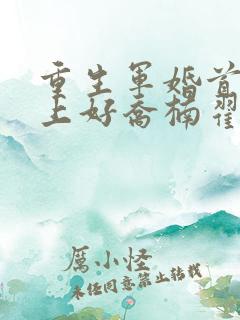 重生军婚首
上好乔楠翟
厉小怪
未经同意禁止转载